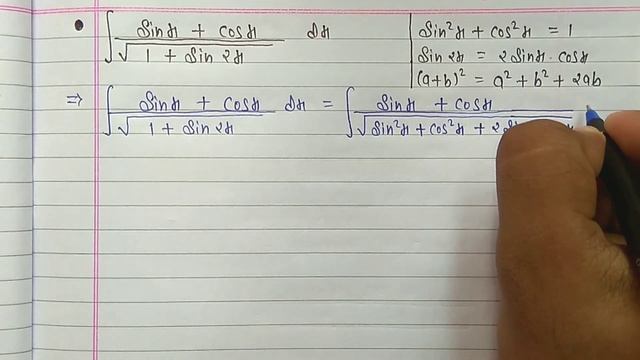 • ∫ sinx + cosx / √(1 + sin 2x) dx
sin²x + cos²x = 1
sin 2x = 2 sinx · cosx
(a+b)² = a² + b² + 2ab
⇒ ∫ sinx + cosx / √(1 + sin 2x) dx = ∫ sinx + cosx / √(sin²x + cos²x + 2